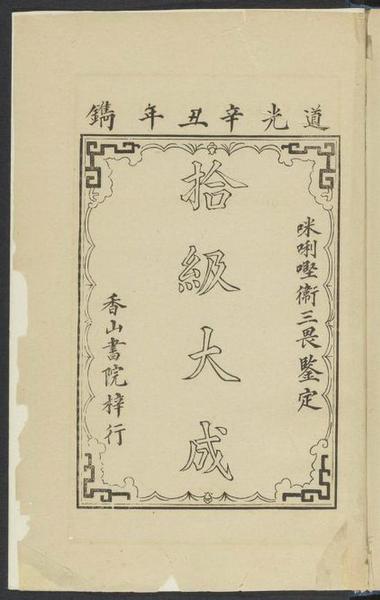 道光辛丑年鐫
咪唎㗴衞三畏鑒定
拾級大成
香山書院梓行